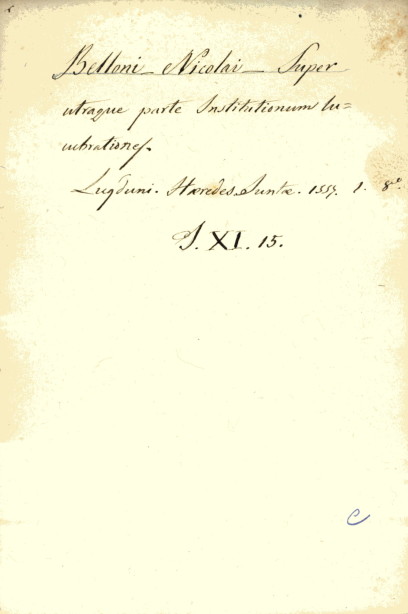 Belloni Nicolai Super
utraque parte Institutionum lu=
cubrationes.
Lugduni. Hæredes Juntæ. 1557. 1. 8.°
J. XI. 15.
C